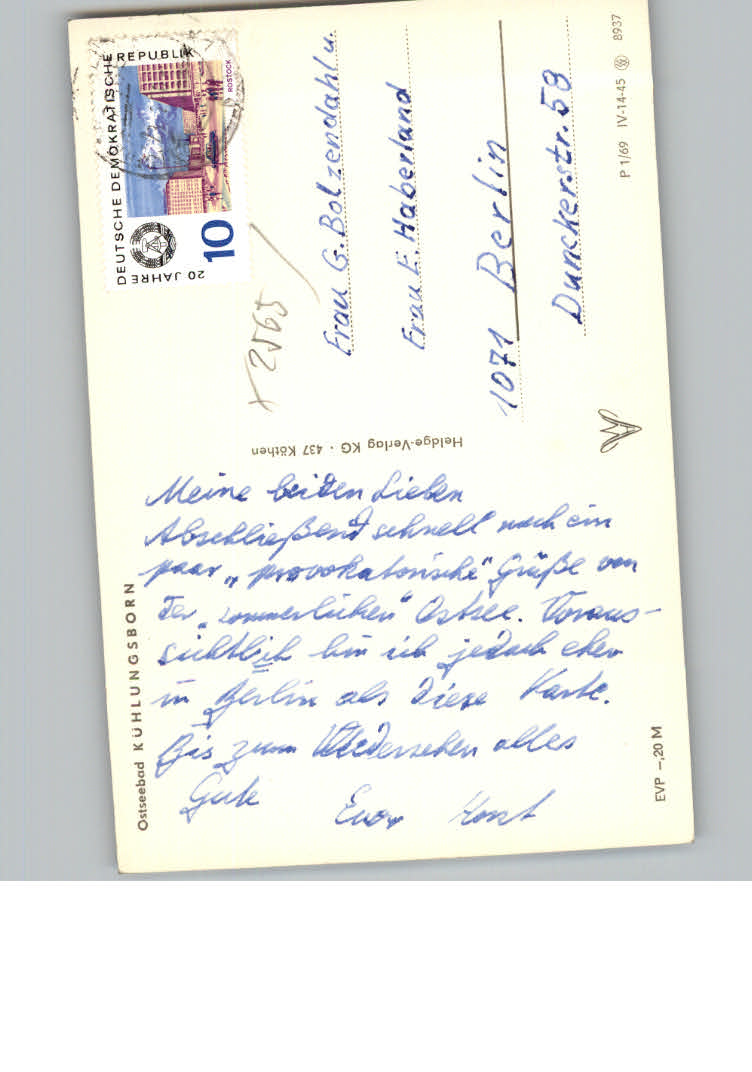 DEUTSCHE DEMOKRATISCHE REPUBLIK
20 JAHRE
10
ROSTOCK
+ 2565
Frau G. Bolzendahl u.
Frau E. Haberland
1071 Berlin
Dunckerstr. 58
P 1/69 IV-14-45 8937
Heldge-Verlag KG · 437 Köthen
Ostseebad KÜHLUNGSBORN
Meine beiden Lieben
Abschließend schnell noch ein
paar „provokatorische" Grüße von
der „sommerlichen" Ostsee. Voraus-
sichtlich bin ich jedoch eher
in Berlin als diese Karte.
Bis zum Wiedersehen alles
Gute
Euer Horst
EVP –,20 M